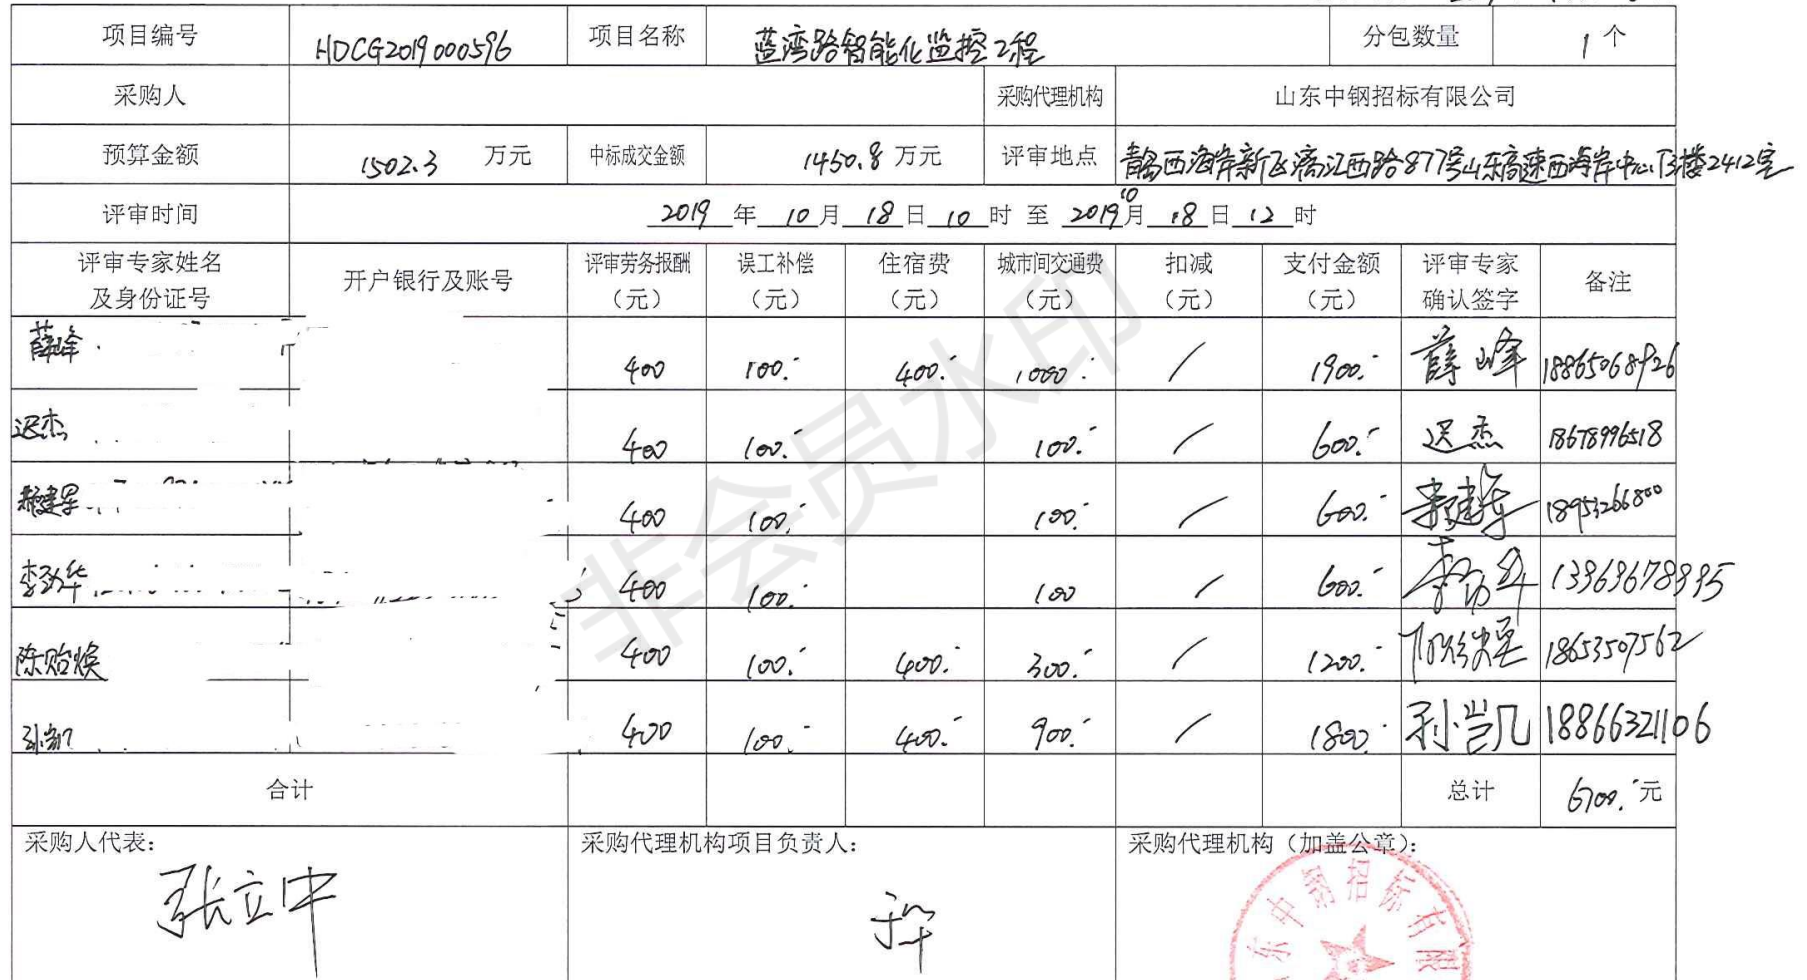 项目编号 HDCG2019000596 项目名称 蓝湾路智能化监控工程 分包数量 1个
采购人 采购代理机构 山东中钢招标有限公司
预算金额 1502.3 万元 中标成交金额 1450.8 万元 评审地点 青岛西海岸新区漓江西路877号山东高速西海岸中心T3楼2412室
评审时间 2019 年 10 月 18 日 10 时 至 2019 10 月 18 日 12 时
评审专家姓名及身份证号 开户银行及账号 评审劳务报酬（元） 误工补偿（元） 住宿费（元） 城市间交通费（元） 扣减（元） 支付金额（元） 评审专家确认签字 备注
薛峰 400 100.- 400.- 1000.- / 1900.- 薛峰 18865068926
迟杰 400 100.- 100.- / 600.- 迟杰 18678996518
400 100.- 100.- / 600.- 18953266800
李劲华 400 100.- 100 / 600.- 李劲华 13969678995
陈贻焕 400 100.- 400.- 300.- / 1200.- 陈贻焕 18653507562
孙凯 400 100.- 400.- 900.- / 1800.- 孙凯 18866321106
合计 总计 6700.-元
采购人代表： 采购代理机构项目负责人： 采购代理机构（加盖公章）：
张立中
东中钢招标有限
非会员水印